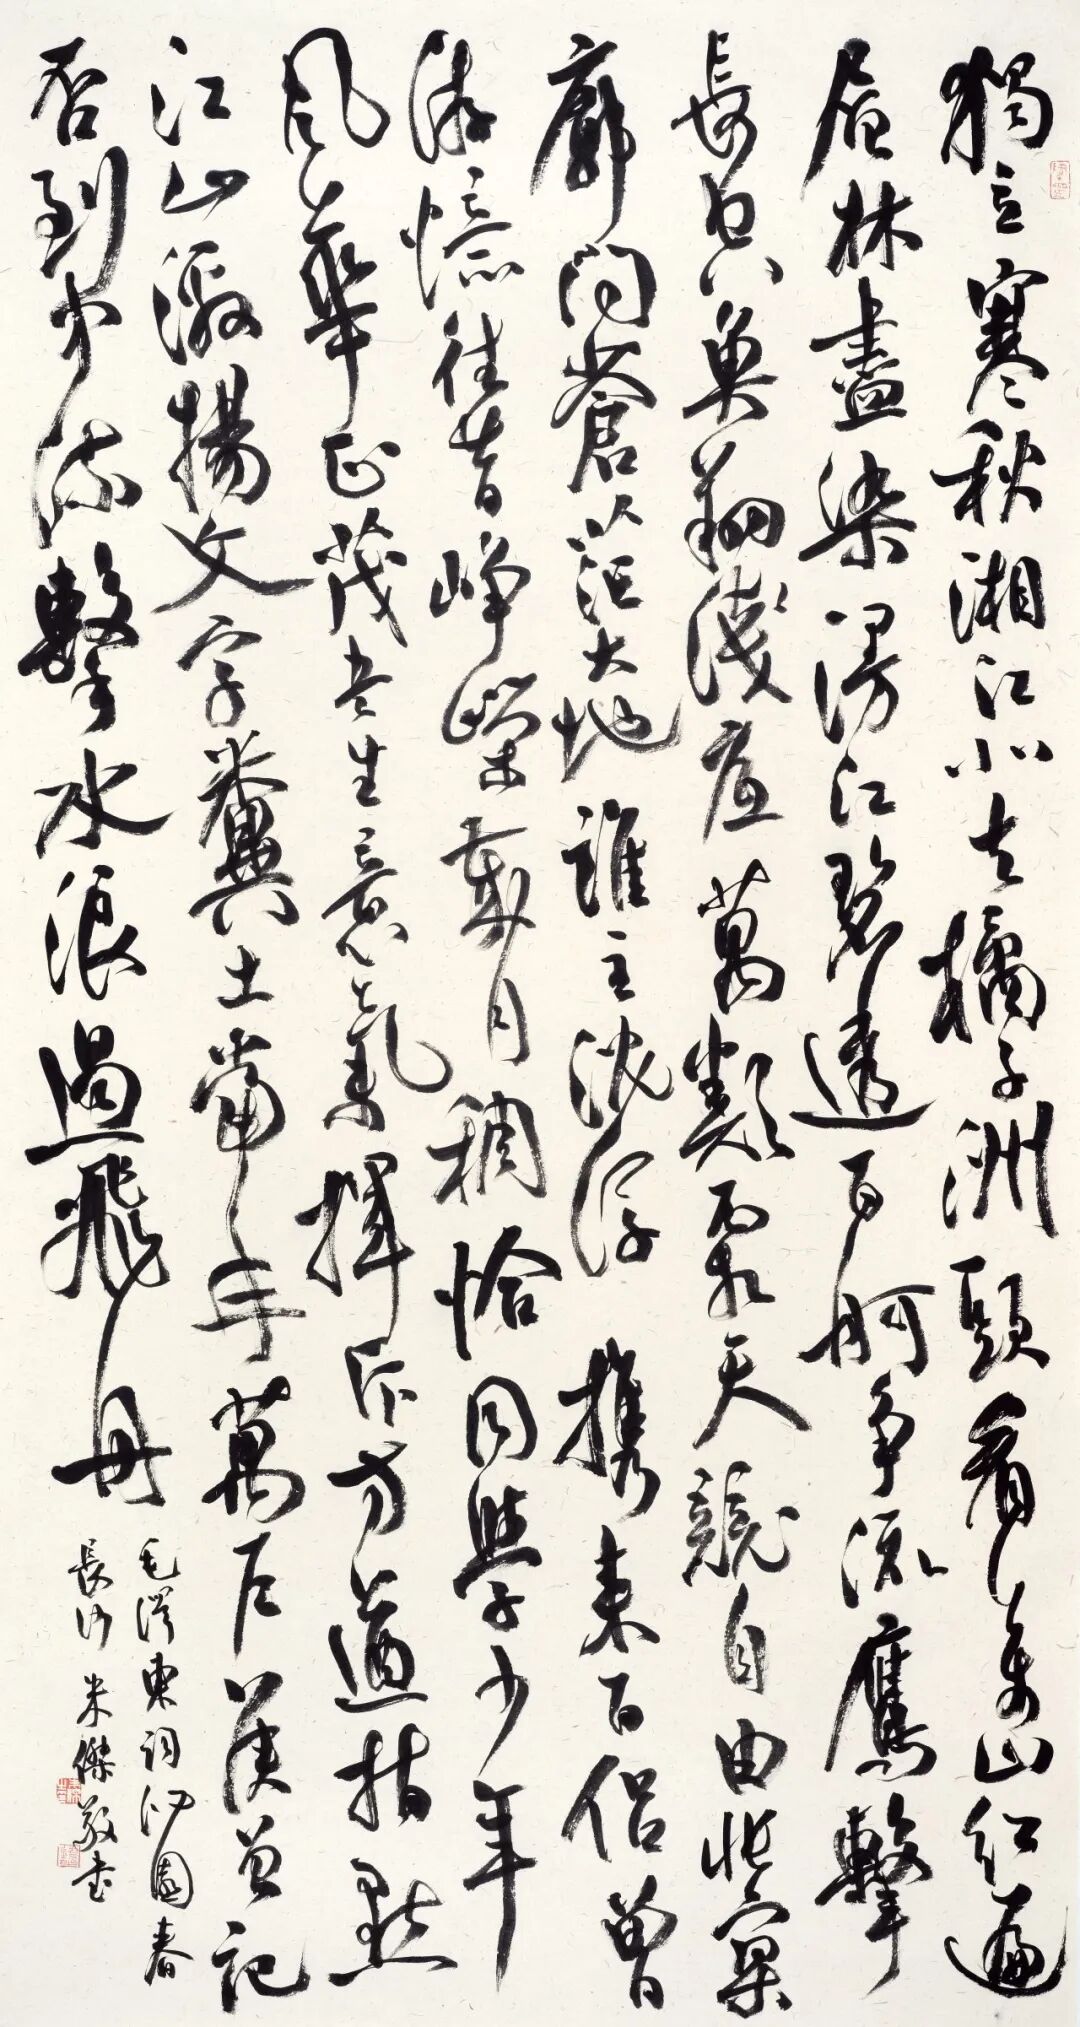 獨立寒秋湘江北去橘子洲頭看萬山紅遍
層林盡染漫江碧透百舸爭流鷹擊
長空魚翔淺底萬類霜天競自由悵寥
廓問蒼茫大地誰主沈浮攜來百侶曾
游憶往昔崢嶸歲月稠恰同學少年
風華正茂書生意氣揮斥方遒指點
江山激揚文字糞土當年萬戶侯曾記
否到中流擊水浪遏飛舟
毛澤東詞沁園春
長沙 米傑敬書